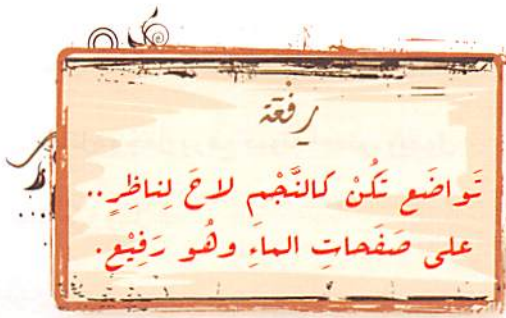 رفعة
تَواضَع تَكُنْ كالنَّجْم لاحَ لِناظِرٍ..
على صَفَحاتِ الماءَِ وهُو رَفِيْع.